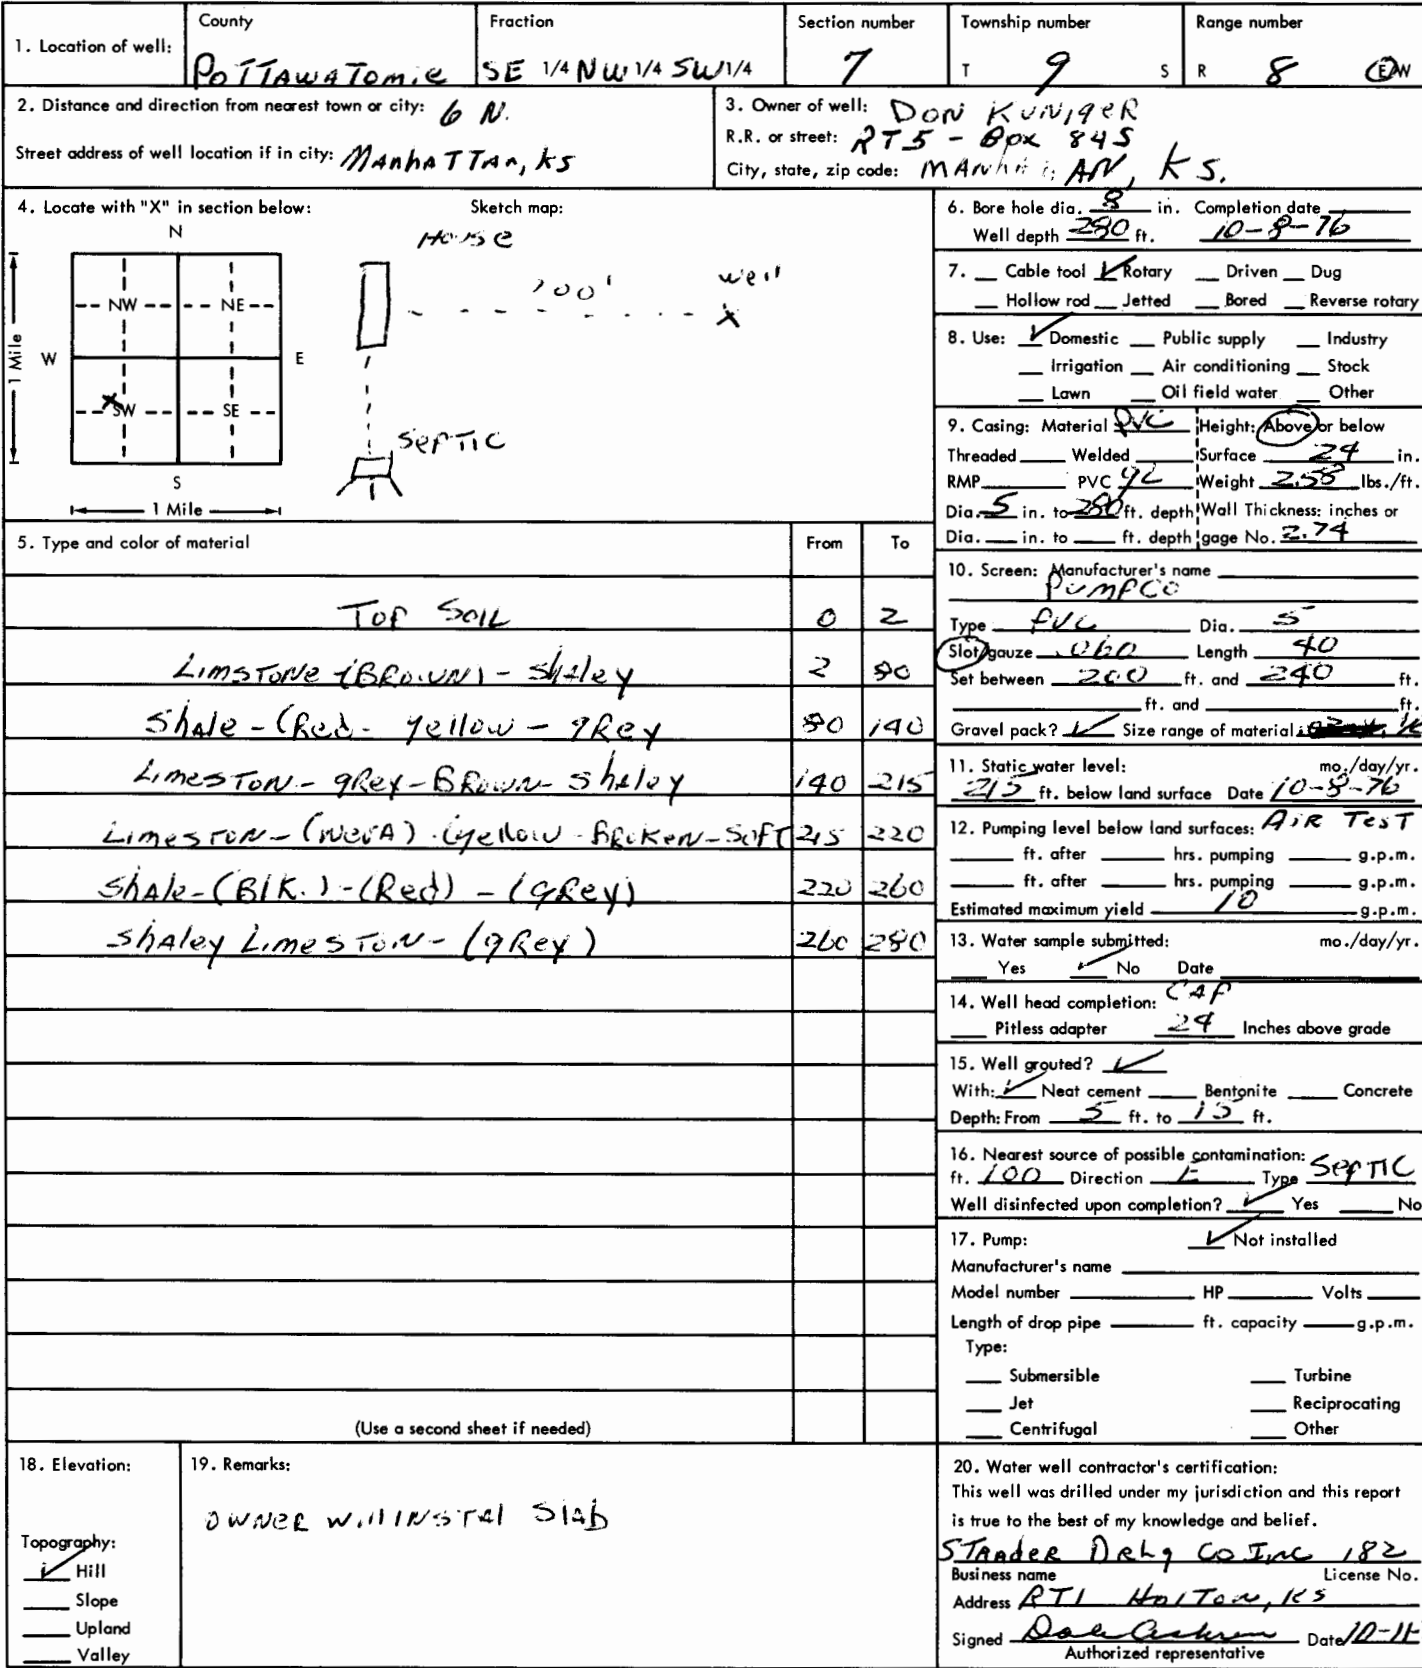 1. Location of well: County POTTAWATOMIE Fraction SE 1/4 NW 1/4 SW 1/4 Section number 7 Township number T 9 S Range number R 8 E/W
2. Distance and direction from nearest town or city: 6 N.
Street address of well location if in city: MANHATTAN, KS
3. Owner of well: DON KUNIGER
R.R. or street: RT 5 - Box 845
City, state, zip code: MANHATTAN, KS.
4. Locate with "X" in section below: Sketch map:
N
W E
S
NW NE
SW SE
X
1 Mile
1 Mile
House
well
X
SEPTIC
5. Type and color of material From To
TOP SOIL 0 2
LIMSTONE (BROWN) - SHALEY 2 80
SHALE - (Red - Yellow - gRey 80 140
LIMESTON - gRey - BROWN - Shaley 140 215
LIMESTON - (NEVA) - (Yellow - BROKEN - SOFT 215 220
SHALE - (Blk.) - (Red) - (gRey) 220 260
SHALEY LIMESTON - (gRey) 260 280
(Use a second sheet if needed)
6. Bore hole dia. 8 in. Completion date
Well depth 280 ft. 10-8-76
7. Cable tool ✓ Rotary Driven Dug
Hollow rod Jetted Bored Reverse rotary
8. Use: ✓ Domestic Public supply Industry
Irrigation Air conditioning Stock
Lawn Oil field water Other
9. Casing: Material PVC Height: Above or below
Threaded Welded Surface 24 in.
RMP PVC Weight 2.58 lbs./ft.
Dia. 5 in. to 280 ft. depth Wall Thickness: inches or
Dia. in. to ft. depth gage No. 2.74
10. Screen: Manufacturer's name
PUMPCO
Type PVC Dia. 5
Slot/gauze .060 Length 40
Set between 200 ft. and 240 ft.
ft. and ft.
Gravel pack? ✓ Size range of material
11. Static water level: mo./day/yr.
215 ft. below land surface Date 10-8-76
12. Pumping level below land surfaces: AIR TEST
ft. after hrs. pumping g.p.m.
ft. after hrs. pumping g.p.m.
Estimated maximum yield 10 g.p.m.
13. Water sample submitted: mo./day/yr.
Yes ✓ No Date
14. Well head completion: CAP
Pitless adapter 24 Inches above grade
15. Well grouted? ✓
With: ✓ Neat cement Bentonite Concrete
Depth: From 5 ft. to 15 ft.
16. Nearest source of possible contamination:
ft. 100 Direction E Type SEPTIC
Well disinfected upon completion? ✓ Yes No
17. Pump: ✓ Not installed
Manufacturer's name
Model number HP Volts
Length of drop pipe ft. capacity g.p.m.
Type:
Submersible Turbine
Jet Reciprocating
Centrifugal Other
18. Elevation:
Topography:
✓ Hill
Slope
Upland
Valley
19. Remarks:
OWNER WILL INSTAL SLAB
20. Water well contractor's certification:
This well was drilled under my jurisdiction and this report
is true to the best of my knowledge and belief.
STRADER DRLG CO INC 182
Business name License No.
Address RT 1 HOLTON, KS
Signed Date 10-11-
Authorized representative